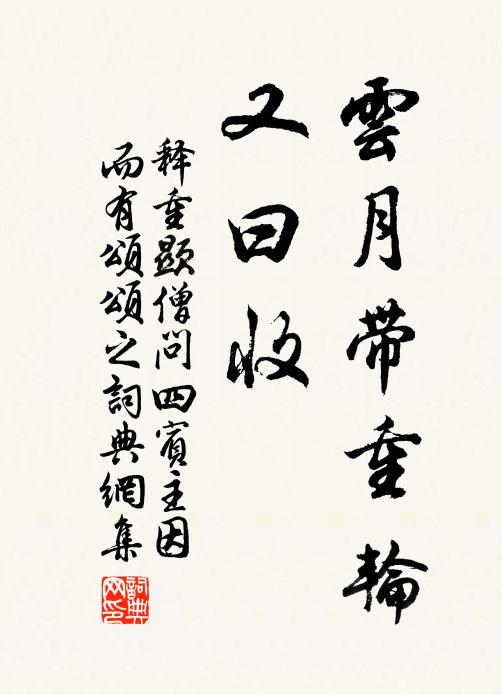 雲月帶重輪
又曰收
释重顯僧問四賓主因
而有頌頌之詞典網集
詞典網印